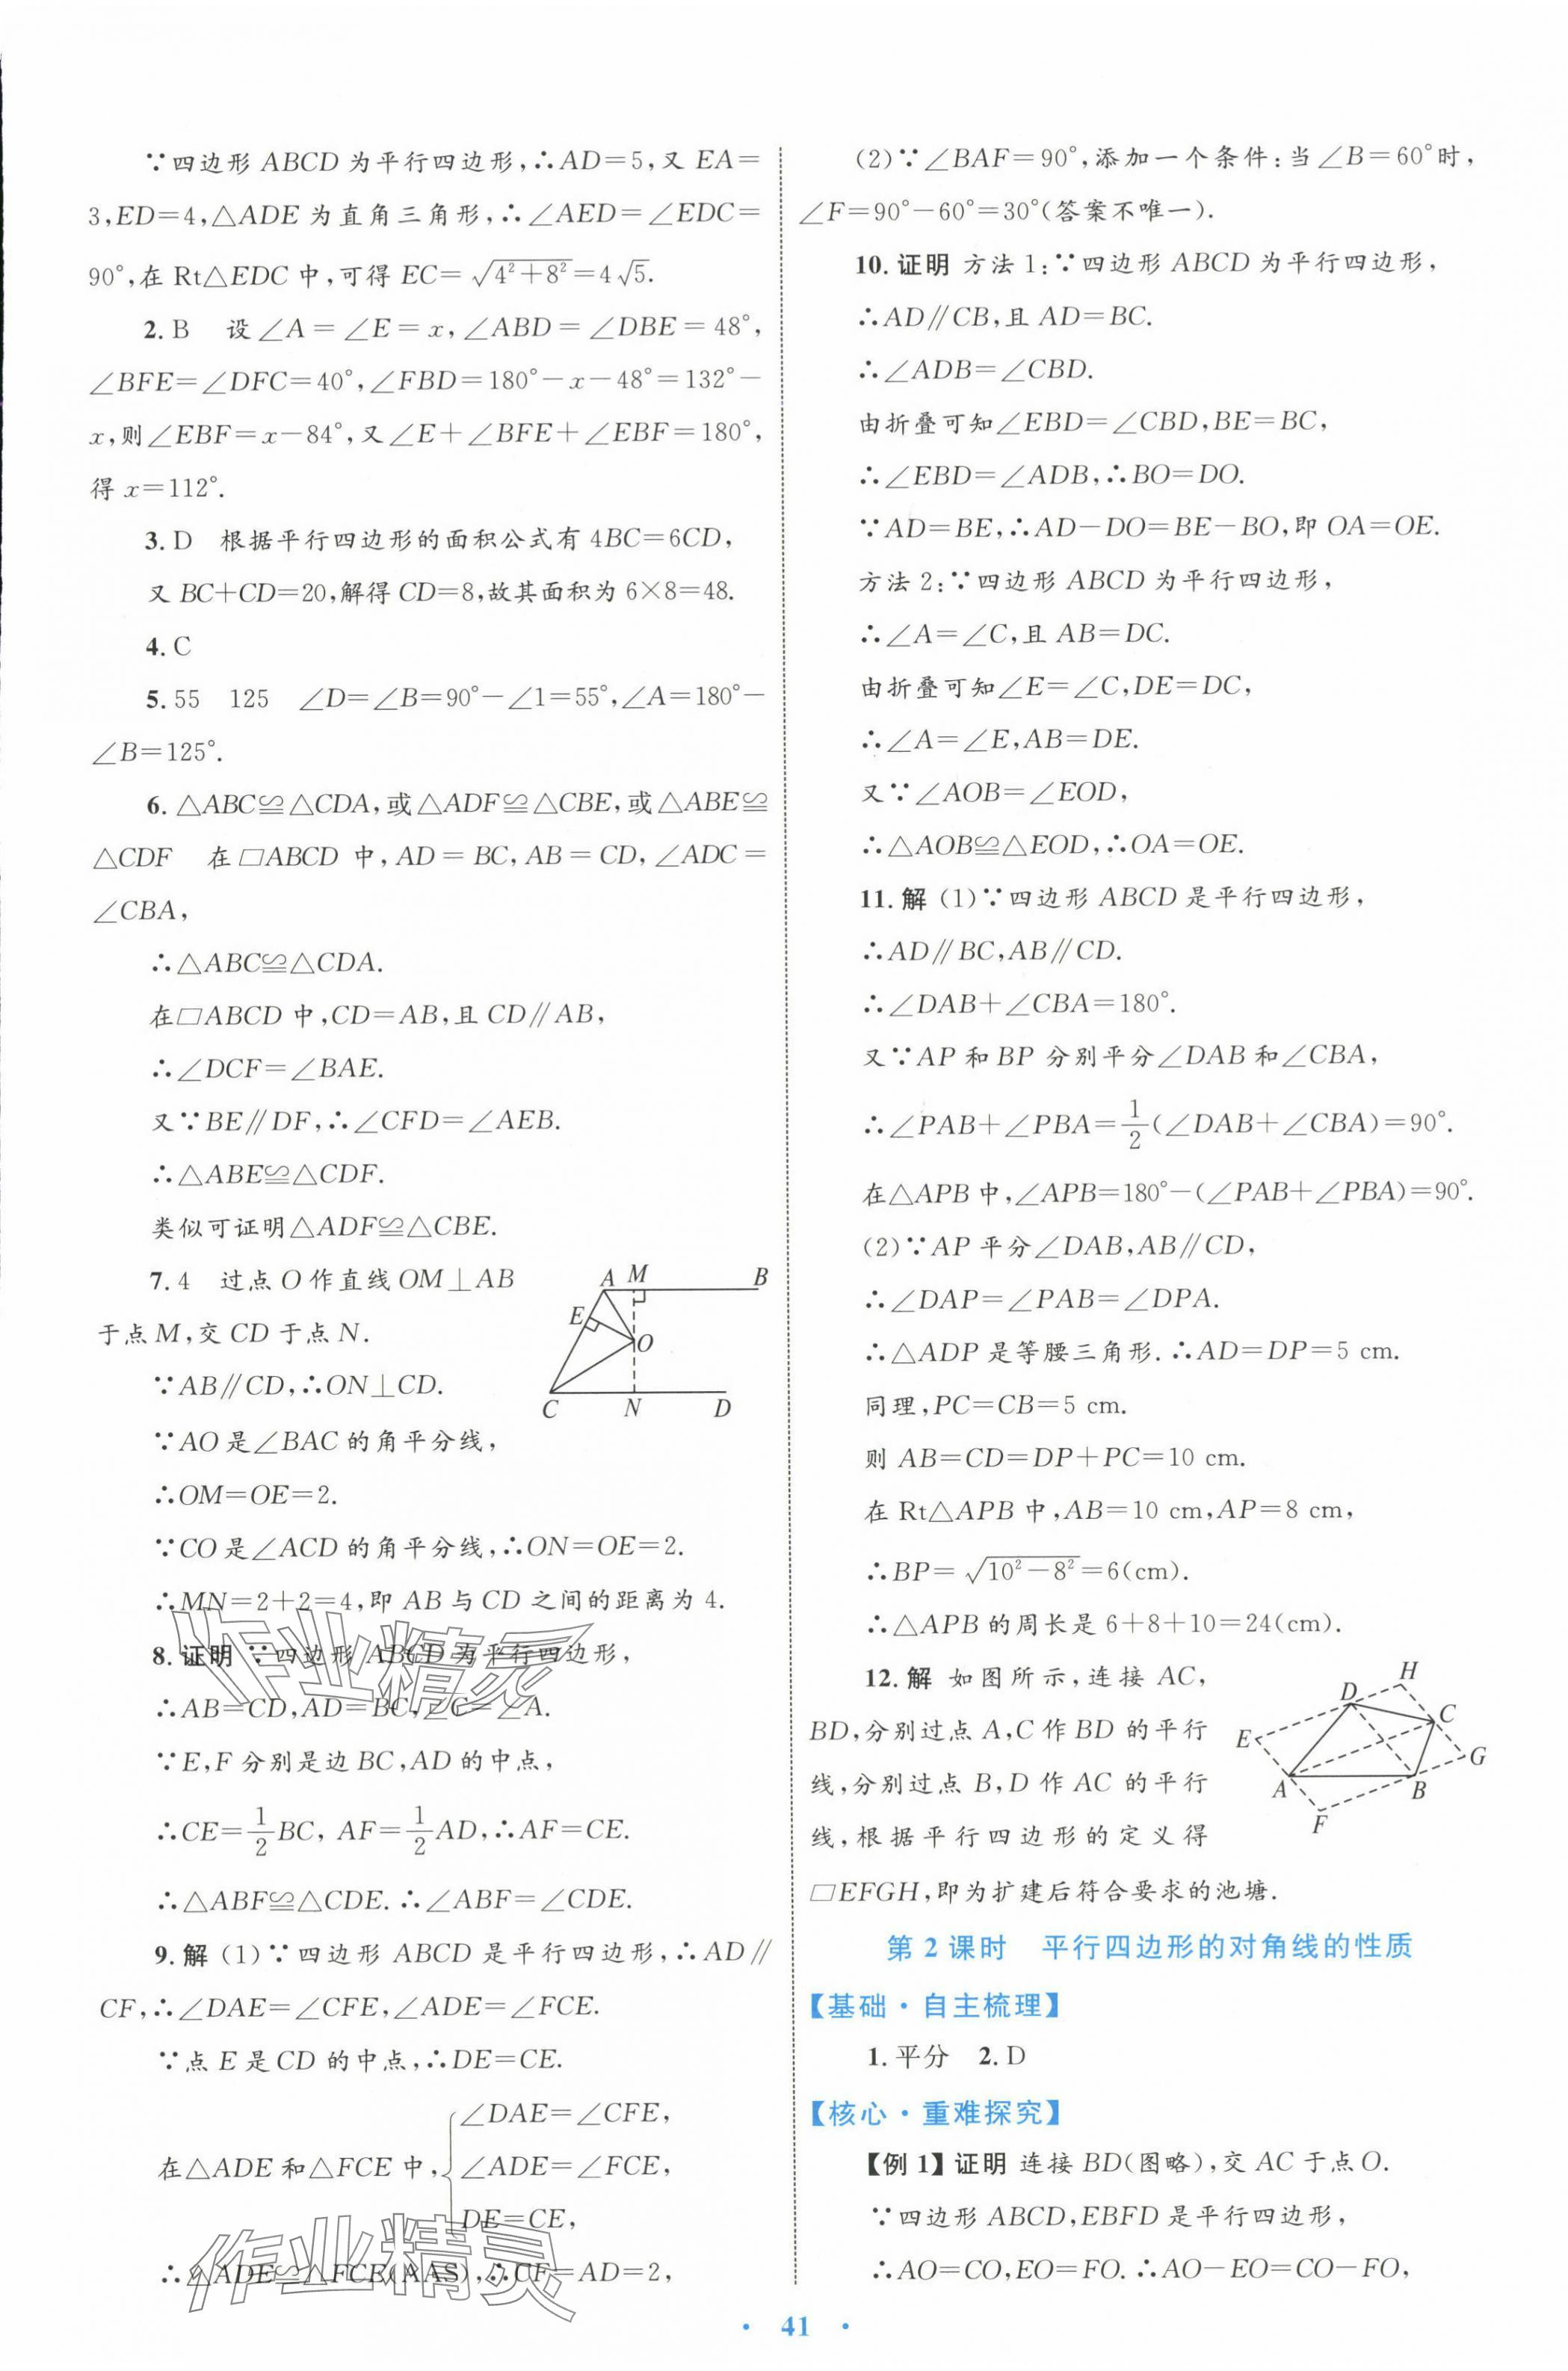 ∵四边形 ABCD 为平行四边形,∴AD=5,又 EA=
3,ED=4,△ADE 为直角三角形,∴∠AED=∠EDC=
90°,在 Rt△EDC 中,可得 EC=√(4²+8²)=4√5.
2.B 设∠A=∠E=x,∠ABD=∠DBE=48°,
∠BFE=∠DFC=40°,∠FBD=180°-x-48°=132°-
x,则∠EBF=x-84°,又∠E+∠BFE+∠EBF=180°,
得 x=112°.
3.D 根据平行四边形的面积公式有 4BC=6CD,
又 BC+CD=20,解得 CD=8,故其面积为 6×8=48.
4.C
5.55 125 ∠D=∠B=90°-∠1=55°,∠A=180°-
∠B=125°.
6.△ABC≌△CDA,或△ADF≌△CBE,或△ABE≌
△CDF 在□ABCD 中,AD=BC,AB=CD,∠ADC=
∠CBA,
∴△ABC≌△CDA.
在□ABCD 中,CD=AB,且 CD∥AB,
∴∠DCF=∠BAE.
又∵BE∥DF,∴∠CFD=∠AEB.
∴△ABE≌△CDF.
类似可证明△ADF≌△CBE.
7.4 过点 O 作直线 OM⊥AB
于点 M,交 CD 于点 N.
∵AB∥CD,∴ON⊥CD.
∵AO 是∠BAC 的角平分线,
∴OM=OE=2.
A M B
E
O
C N D
∵CO 是∠ACD 的角平分线,∴ON=OE=2.
∴MN=2+2=4,即 AB 与 CD 之间的距离为 4.
8.证明 ∵四边形 ABCD 为平行四边形,
∴AB=CD,AD=BC,∠C=∠A.
作业精灵
∵E,F 分别是边 BC,AD 的中点,
∴CE=1/2BC, AF=1/2AD,∴AF=CE.
∴△ABF≌△CDE.∴∠ABF=∠CDE.
9.解 (1)∵四边形 ABCD 是平行四边形,∴AD∥
CF,∴∠DAE=∠CFE,∠ADE=∠FCE.
∵点 E 是 CD 的中点,∴DE=CE.
在△ADE 和△FCE 中,{∠DAE=∠CFE,
∠ADE=∠FCE,
DE=CE,
∴△ADE≌△FCE(AAS),∴CF=AD=2,
作业精灵
(2)∵∠BAF=90°,添加一个条件:当∠B=60°时,
∠F=90°-60°=30°(答案不唯一).
10.证明 方法 1:∵四边形 ABCD 为平行四边形,
∴AD∥CB,且 AD=BC.
∴∠ADB=∠CBD.
由折叠可知∠EBD=∠CBD,BE=BC,
∴∠EBD=∠ADB,∴BO=DO.
∵AD=BE,∴AD-DO=BE-BO,即 OA=OE.
方法 2:∵四边形 ABCD 为平行四边形,
∴∠A=∠C,且 AB=DC.
由折叠可知∠E=∠C,DE=DC,
∴∠A=∠E,AB=DE.
又∵∠AOB=∠EOD,
∴△AOB≌△EOD,∴OA=OE.
11.解 (1)∵四边形 ABCD 是平行四边形,
∴AD∥BC,AB∥CD.
∴∠DAB+∠CBA=180°.
又∵AP 和 BP 分别平分∠DAB 和∠CBA,
∴∠PAB+∠PBA=1/2(∠DAB+∠CBA)=90°.
在△APB 中,∠APB=180°-(∠PAB+∠PBA)=90°.
(2)∵AP 平分∠DAB,AB∥CD,
∴∠DAP=∠PAB=∠DPA.
∴△ADP 是等腰三角形.∴AD=DP=5 cm.
同理,PC=CB=5 cm.
则 AB=CD=DP+PC=10 cm.
在 Rt△APB 中,AB=10 cm,AP=8 cm,
∴BP=√(10²-8²)=6(cm).
∴△APB 的周长是 6+8+10=24(cm).
12.解 如图所示,连接 AC,
BD,分别过点 A,C 作 BD 的平行
线,分别过点 B,D 作 AC 的平行
线,根据平行四边形的定义得
□EFGH,即为扩建后符合要求的池塘.
H
D
C
E
G
A B
F
第 2 课时 平行四边形的对角线的性质
【基础·自主梳理】
1.平分 2.D
【核心·重难探究】
【例 1】证明 连接 BD(图略),交 AC 于点 O.
∵四边形 ABCD,EBFD 是平行四边形,
∴AO=CO,EO=FO.∴AO-EO=CO-FO,
· 41 ·